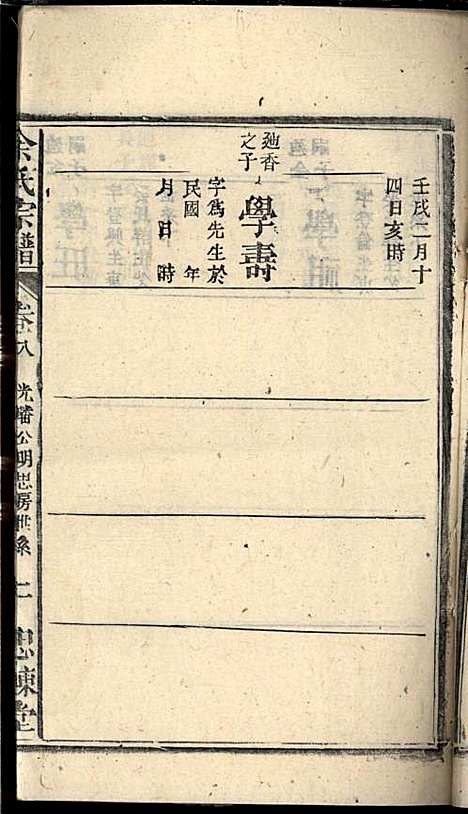 壬戌二月十
四日亥時
廸香
之子
學壽
字爲先生於
民國 年
月日時
余氏宗譜
卷八
光曙公明忠房世系
二
忠諫堂